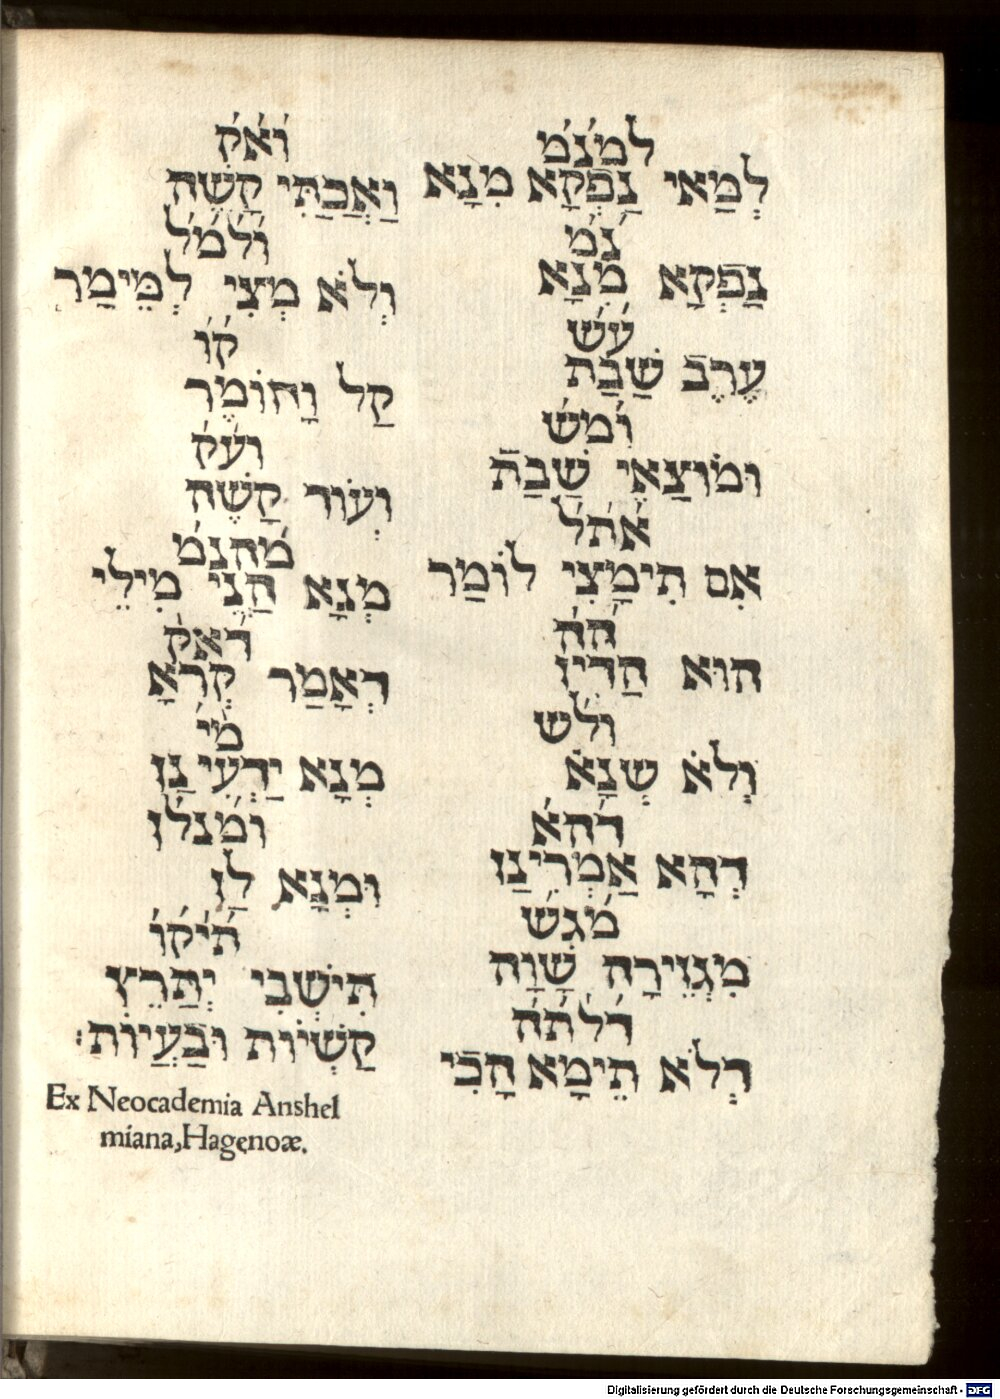 ל׳מ׳נ׳מ׳
לְמַאי נָפְקָא מִנָא
נ׳מ׳
נָפְקָא מִנָא
ע׳ש׳
עֶרֶב שַׁבָּת
ו׳מ׳ש׳
וּמוֹצָאֵי שַׁבָּת
א׳ת׳ל׳
אִם תִימָצִי לוֹמַר
ה׳ה׳
הוּא הַדִין
ו׳ל׳ש׳
וְלֹא שְנָא
ד׳ה׳א׳
דְהָא אַמְרִינַן
מ׳ג׳ש׳
מִגְזֵירָה שָׁוָה
ד׳ל׳ת׳ה׳
דְלֹא תֵימָא הָכִי
ו׳א׳ק׳
וַאֲכַתִּי קָשֶׁה
ו׳ל׳מ׳ל׳
וְלֹא מְצִי לְמֵימָר
ק׳ו׳
קַל וָחוֹמֶר
ו׳ע׳ק׳
וְעוֹד קָשֶׁה
מ׳ה׳נ׳מ׳
מְנָא הָנֵי מִילֵי
ד׳א׳ק׳
דְאָמַר קְרָא
מ׳י׳
מְנָא יַדְעִינַן
ו׳מ׳נ׳ל׳ן
וּמְנָא לַן
ת׳י׳ק׳ו׳
תִּישְׁבִּי יְתַרֵץ
קַשְׁיוֹת וּבַּעֲיוֹת:
Ex Neocademia Anshel
miana, Hagenoæ.
Digitalisierung gefördert durch die Deutsche Forschungsgemeinschaft - DFG